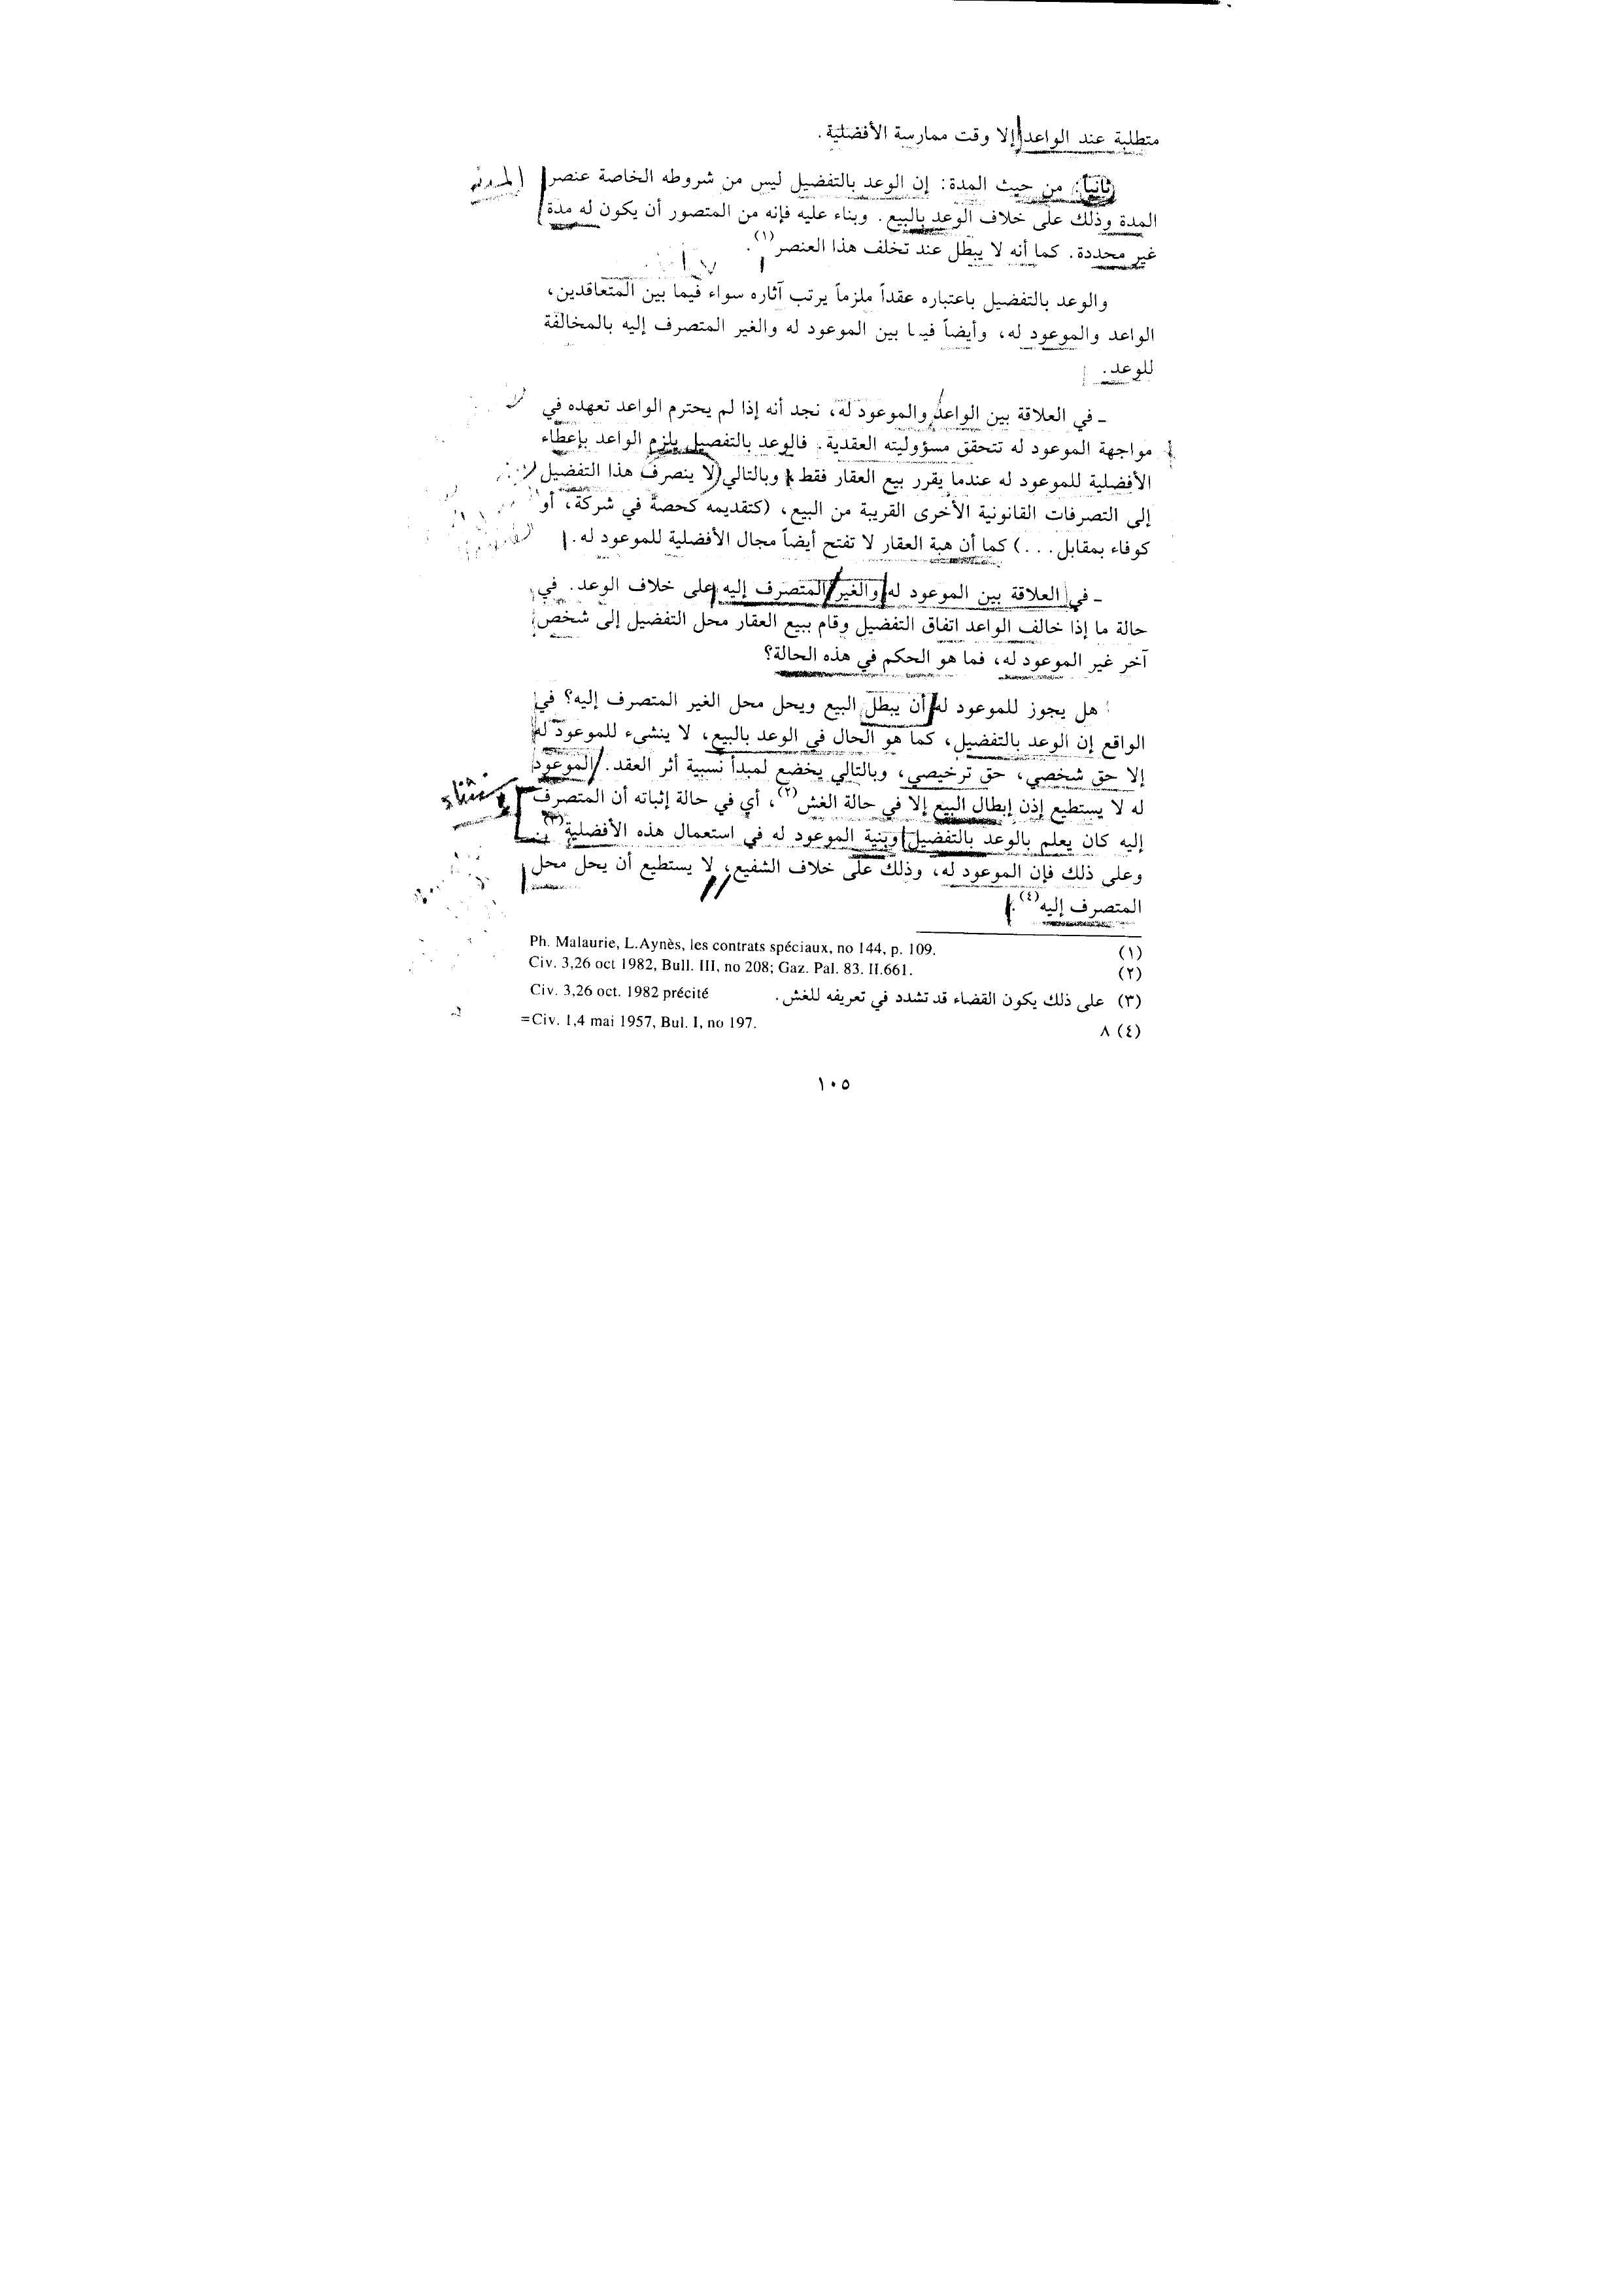 متطلبة عند الواعد إلا وقت ممارسة الأفضلية.
ثانياً: من حيث المدة: إن الوعد بالتفضيل ليس من شروطه الخاصة عنصر
المدة وذلك على خلاف الوعد بالبيع. وبناء عليه فإنه من المتصور أن يكون له مدة
غير محددة. كما أنه لا يبطل عند تخلف هذا العنصر(١).
والوعد بالتفضيل باعتباره عقداً ملزماً يرتب آثاره سواء فيما بين المتعاقدين،
الواعد والموعود له، وأيضاً فيما بين الموعود له والغير المتصرف إليه بالمخالفة
للوعد.
ـ في العلاقة بين الواعد والموعود له، نجد أنه إذا لم يحترم الواعد تعهده في
مواجهة الموعود له تتحقق مسؤوليته العقدية. فالوعد بالتفضيل يلزم الواعد بإعطاء
الأفضلية للموعود له عندما يقرر بيع العقار فقط، وبالتالي لا ينصرف هذا التفضيل
إلى التصرفات القانونية الأخرى القريبة من البيع، (كتقديمه كحصة في شركة، أو
كوفاء بمقابل...) كما أن هبة العقار لا تفتح أيضاً مجال الأفضلية للموعود له.
ـ في العلاقة بين الموعود له والغير المتصرف إليه على خلاف الوعد. في
حالة ما إذا خالف الواعد اتفاق التفضيل وقام ببيع العقار محل التفضيل إلى شخص
آخر غير الموعود له، فما هو الحكم في هذه الحالة؟
هل يجوز للموعود له أن يبطل البيع ويحل محل الغير المتصرف إليه؟ في
الواقع إن الوعد بالتفضيل، كما هو الحال في الوعد بالبيع، لا ينشىء للموعود له
إلا حق شخصي، حق ترخيصي، وبالتالي يخضع لمبدأ نسبية أثر العقد. الموعود
له لا يستطيع إذن إبطال البيع إلا في حالة الغش(٢)، أي في حالة إثباته أن المتصرف
إليه كان يعلم بالوعد بالتفضيل وبنية الموعود له في استعمال هذه الأفضلية(٣).
وعلى ذلك فإن الموعود له، وذلك على خلاف الشفيع، لا يستطيع أن يحل محل
المتصرف إليه(٤).
(١) Ph. Malaurie, L.Aynès, les contrats spéciaux, no 144, p. 109.
(٢) Civ. 3,26 oct 1982, Bull. III, no 208; Gaz. Pal. 83. II.661.
(٣) على ذلك يكون القضاء قد تشدد في تعريفه للغش. Civ. 3,26 oct. 1982 précité
(٤) ٨ =Civ. 1,4 mai 1957, Bul. I, no 197.
١٠٥